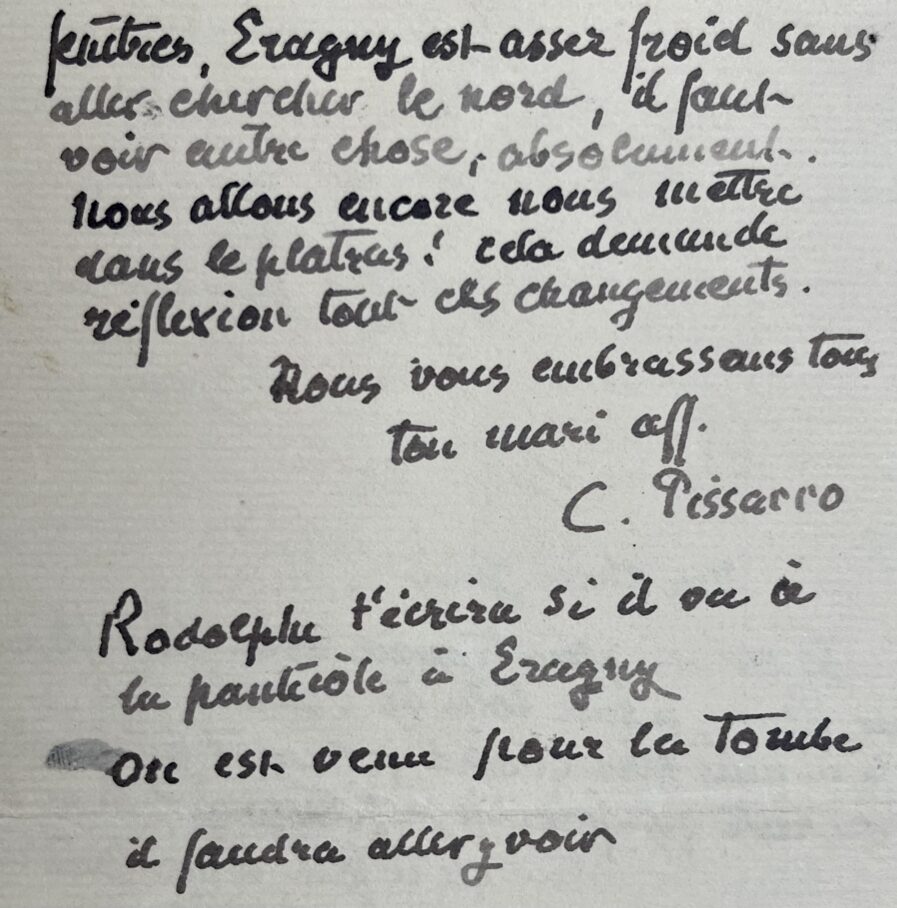 peintres, Eragny est assez froid sans
aller chercher le nord, il faut
voir autre chose, absolument.
Nous allons encore nous mettre
dans le platras! cela demande
réflexion tout ces changements.
Nous vous embrassons tous
ton mari aff.
C. Pissarro
Rodolphe t'écrira si il ou à
la à Eragny
On est venu pour la Tombe
il faudra aller y voir